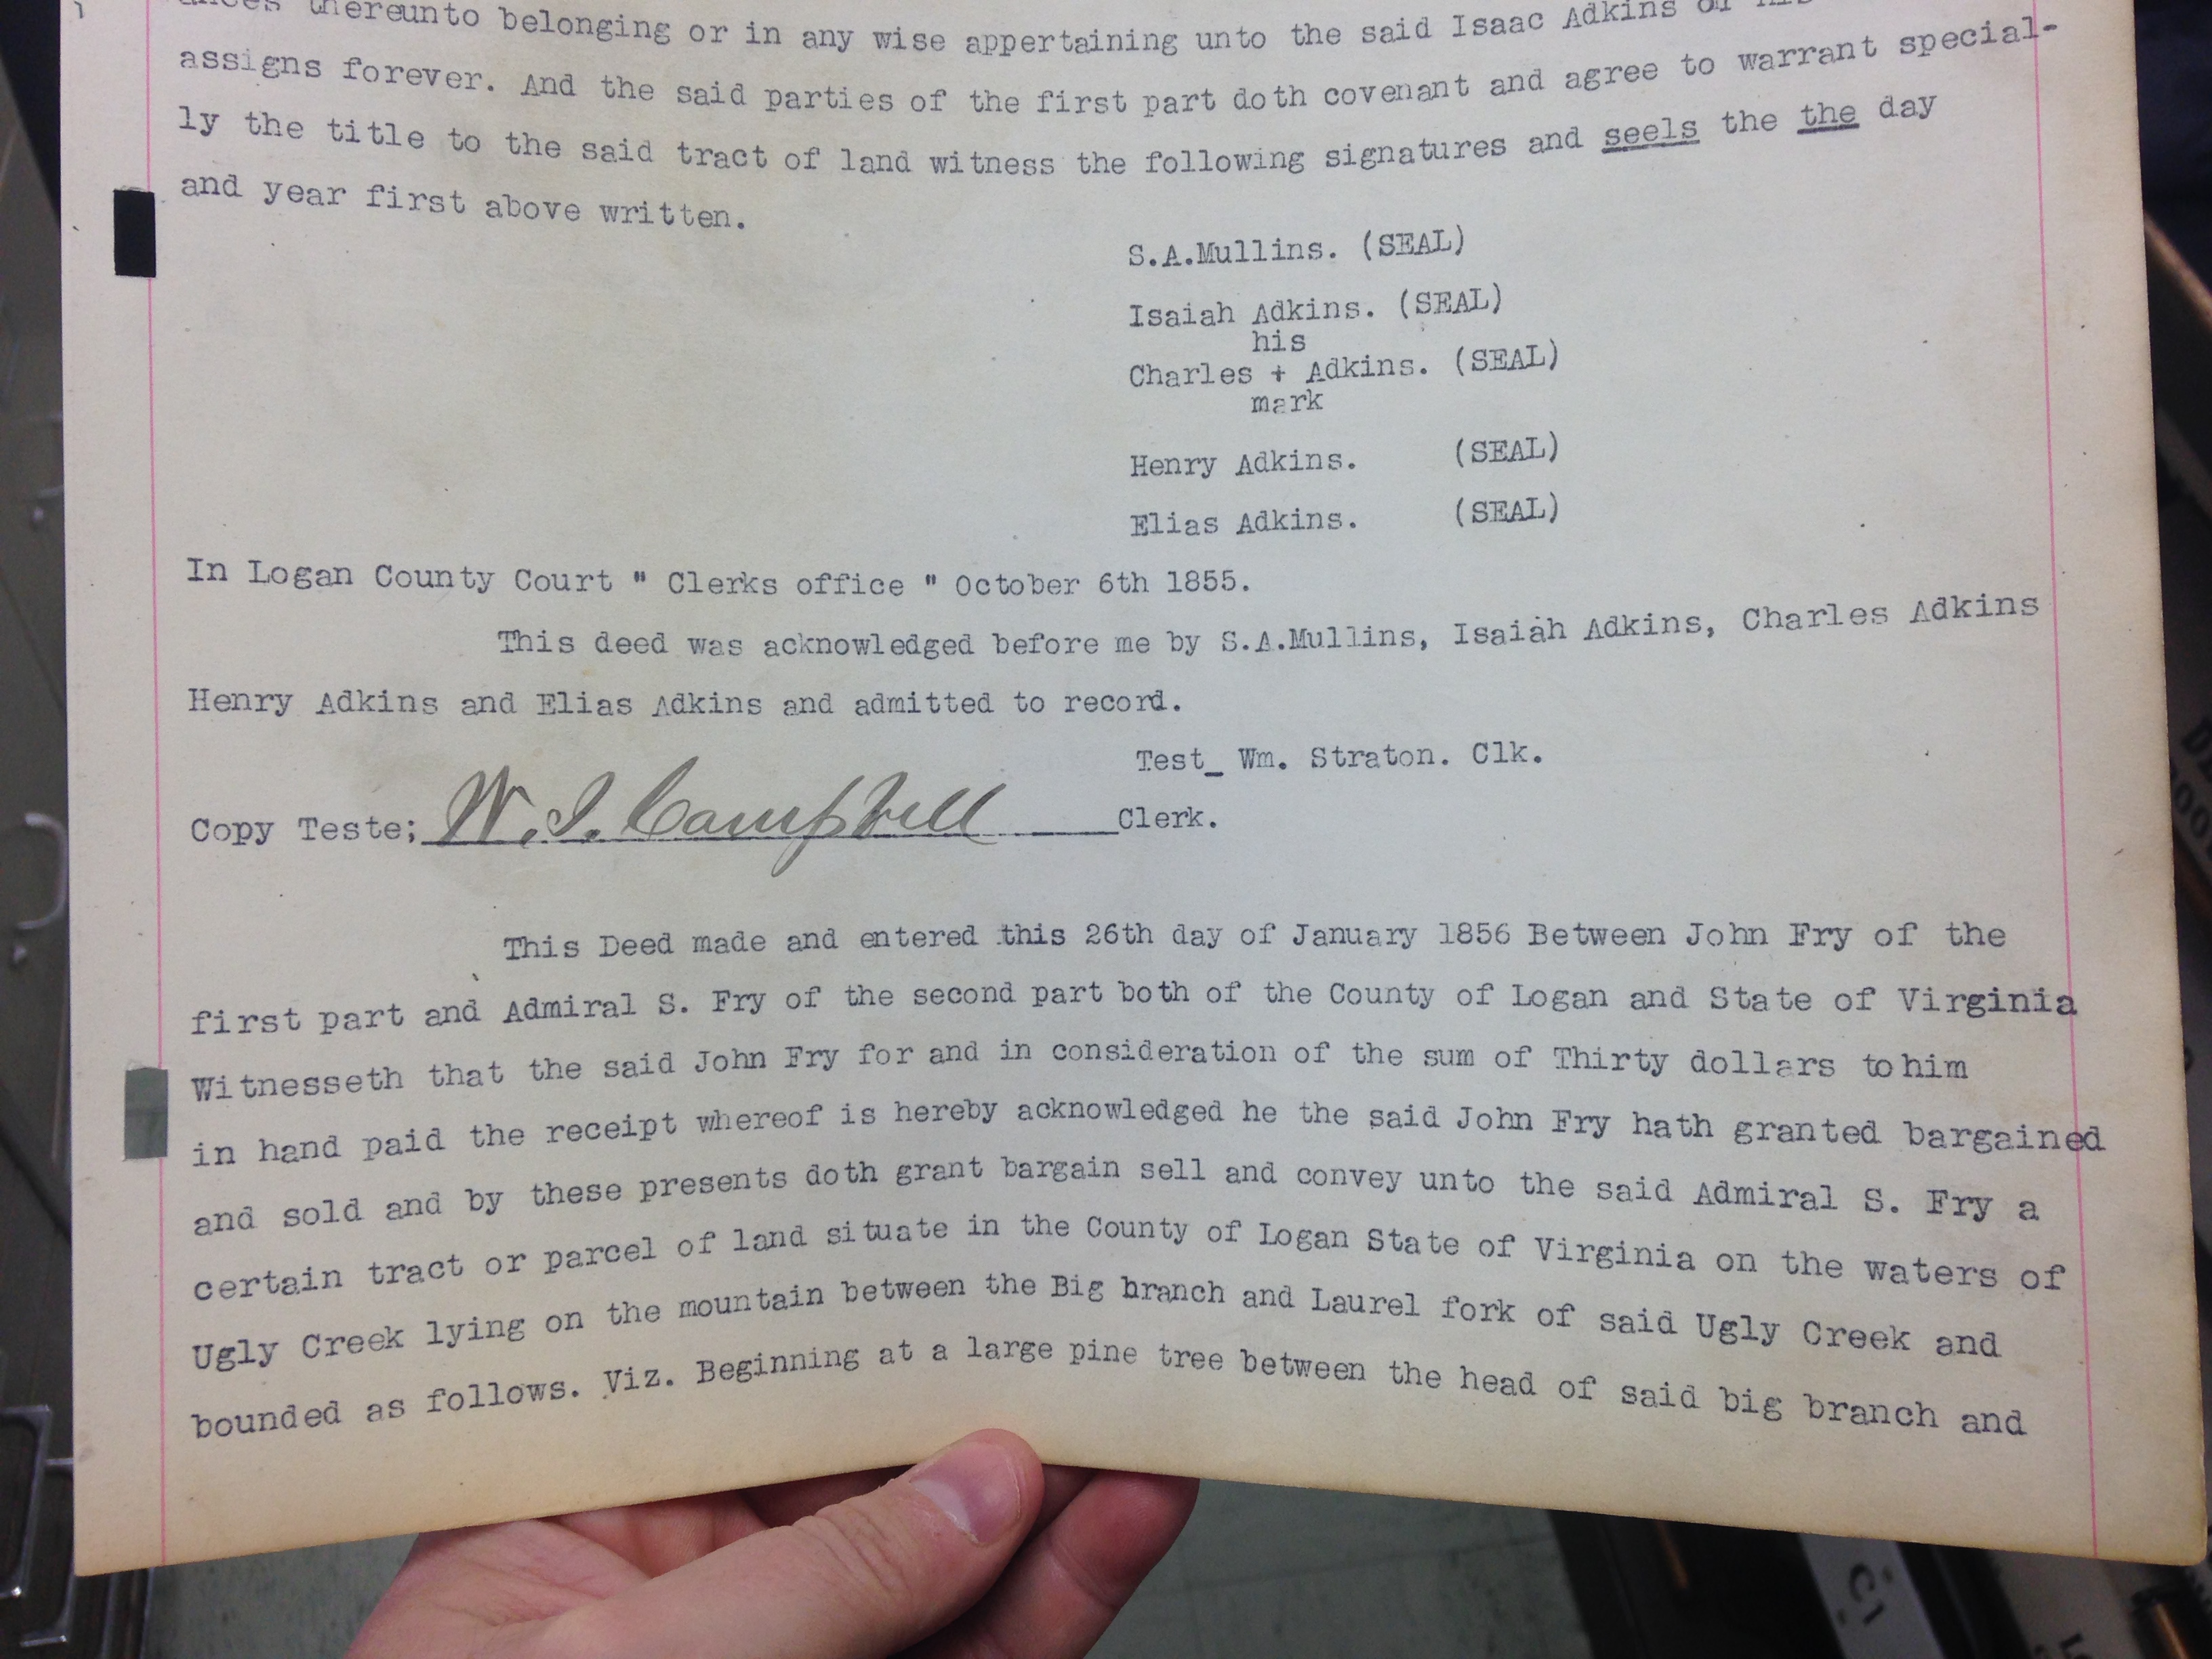 thereunto belonging or in any wise appertaining unto the said Isaac Adkins or his
assigns forever. And the said parties of the first part doth covenant and agree to warrant special-
ly the title to the said tract of land witness the following signatures and seels the the day
and year first above written.
S.A.Mullins. (SEAL)
Isaiah Adkins. (SEAL)
his
Charles + Adkins. (SEAL)
mark
Henry Adkins. (SEAL)
Elias Adkins. (SEAL)
In Logan County Court " Clerks office " October 6th 1855.
This deed was acknowledged before me by S.A.Mullins, Isaiah Adkins, Charles Adkins
Henry Adkins and Elias Adkins and admitted to record.
Test_ Wm. Straton. Clk.
Copy Teste; W. I. Campbell Clerk.
This Deed made and entered this 26th day of January 1856 Between John Fry of the
first part and Admiral S. Fry of the second part both of the County of Logan and State of Virginia
Witnesseth that the said John Fry for and in consideration of the sum of Thirty dollars to him
in hand paid the receipt whereof is hereby acknowledged he the said John Fry hath granted bargained
and sold and by these presents doth grant bargain sell and convey unto the said Admiral S. Fry a
certain tract or parcel of land situate in the County of Logan State of Virginia on the waters of
Ugly Creek lying on the mountain between the Big branch and Laurel fork of said Ugly Creek and
bounded as follows. Viz. Beginning at a large pine tree between the head of said big branch and